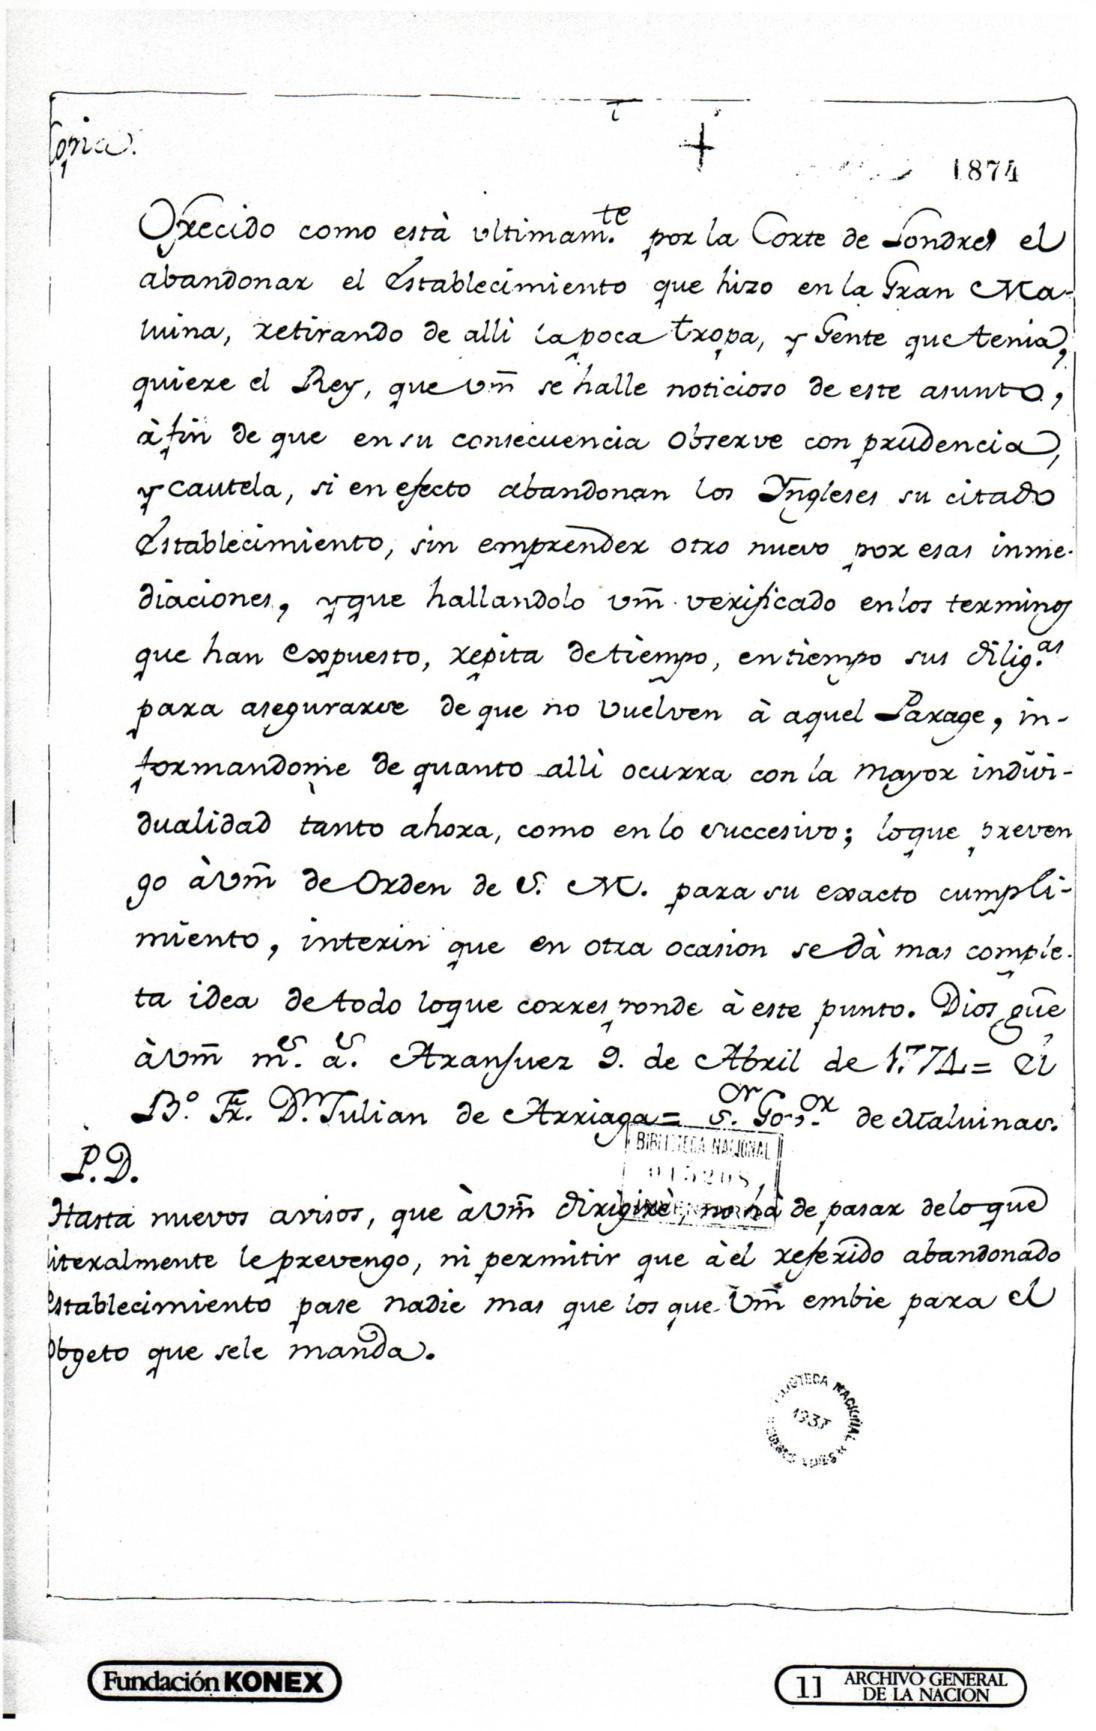 Copia.
1874
Ofrecido como està ultimam.te por la Corte de Londres el
abandonar el Establecimiento que hizo en la Gran Ma-
luina, retirando de alli la poca tropa, y Gente que tenia,
quiere el Rey, que Vm̃ se halle noticioso de este asunto,
à fin de que en su consecuencia observe con prudencia,
y cautela, si en efecto abandonan los Yngleses su citado
Establecimiento, sin emprender otro nuevo por esas inme-
diaciones, y que hallandolo Vm̃ verificado en los terminos
que han expuesto, repita de tiempo, en tiempo sus dilig.as
para asegurarse de que no vuelven à aquel Parage, in-
formandome de quanto alli ocurra con la mayor indivi-
dualidad tanto ahora, como en lo succesivo; lo que preven
go à Vm̃ de Orden de S. M. para su exacto cumpli-
miento, interin que en otra ocasion se dà mas comple-
ta idea de todo lo que corresponde à este punto. Dios güe
à Vm̃ m.s a.s Aranjuez 9. de Abril de 1774 = El
B.o Fr. D.n Julian de Arriaga = S.or Go.or de Maluinas.
P.D.
Hasta nuevos avisos, que à Vm̃ dirigirè, no ha de pasar de lo que
literalmente le prevengo, ni permitir que à el referido abandonado
Establecimiento pase nadie mas que los que Vm̃ embie para el
Obgeto que se le manda.
BIBLIOTECA NACIONAL
BIBLIOTECA NACIONAL
1937
Fundación KONEX
11 ARCHIVO GENERAL
DE LA NACION